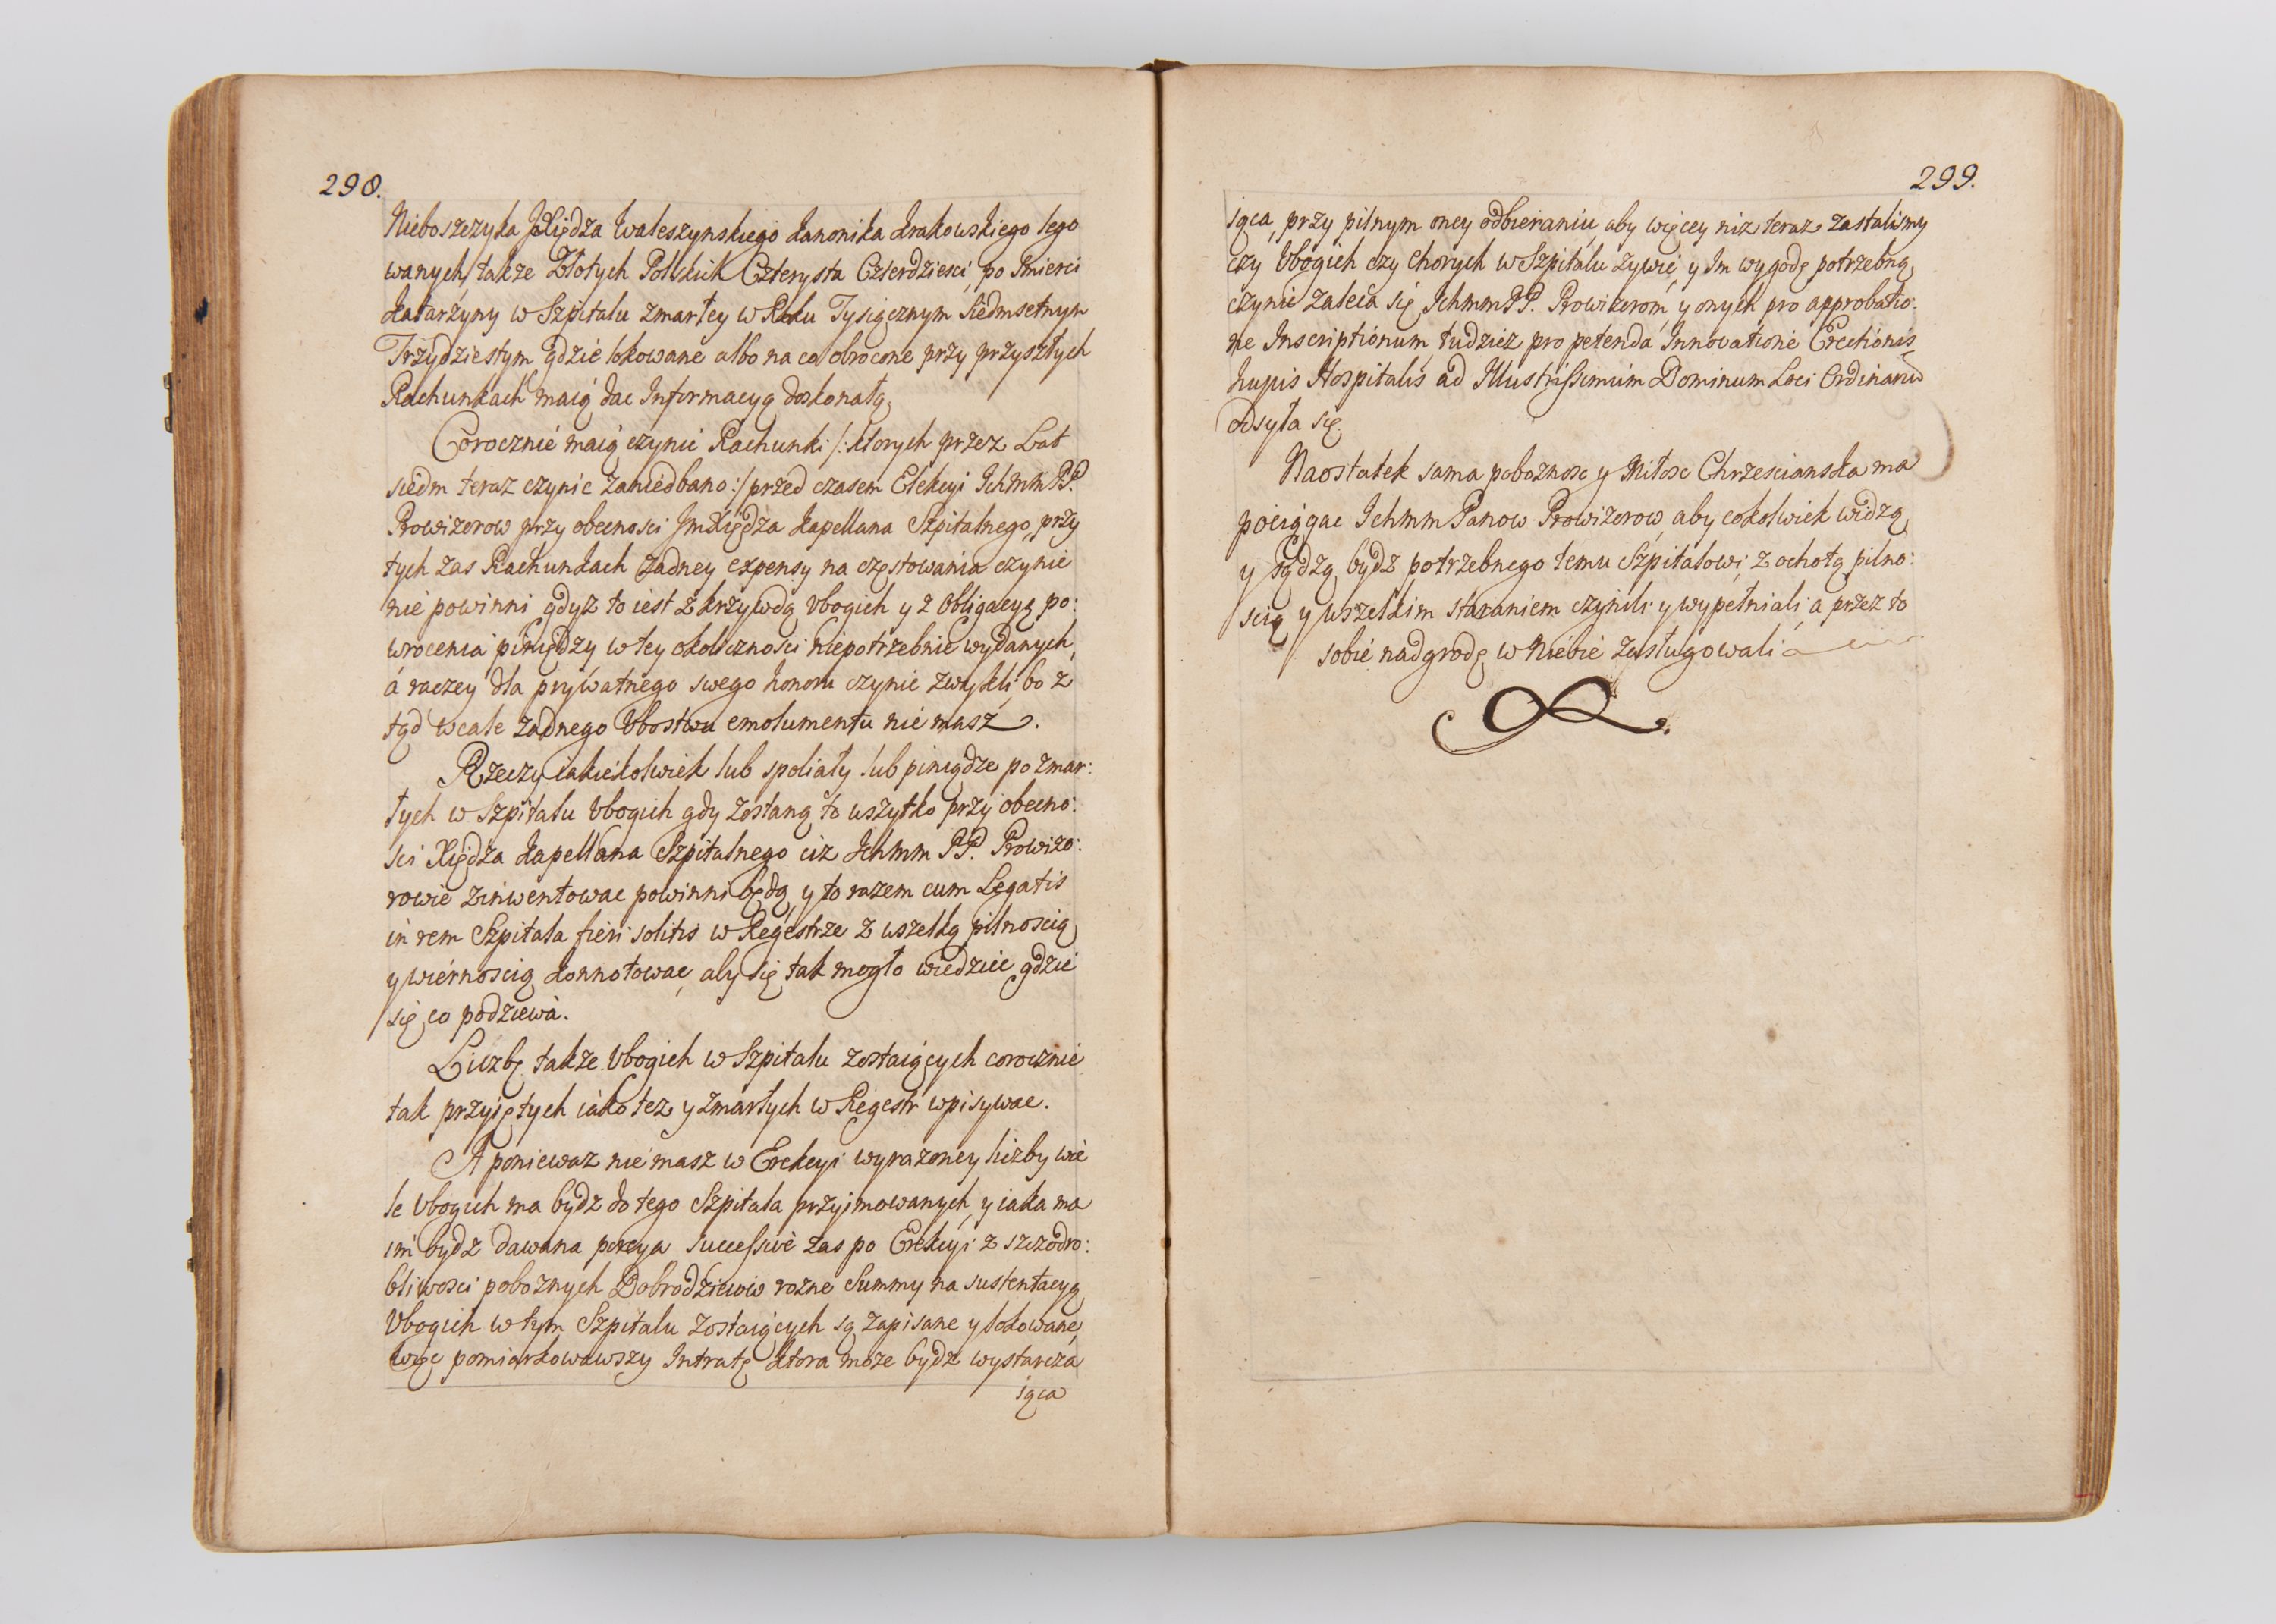 298.
Nieboszczyka JXiędza Waleszynskiego Kanonika Krakowskiego lego
wanych, także Złotych Polskich Czterysta Czterdziesci, po smierci
Katarzyny w Szpitalu zmarłey w Roku Tysiącznym Siedmsetnym
Trzydziestym gdzie lokowane albo na co obrocone przy przyszłych
Rachunkach maią dac Informacyą doskonałą.
Corocznie maią czynic Rachunki /: ktorych przez Lat
siedm teraz czynic zaniedbano :/ przed czasem Elekcyi IchMm PP.
Prowizorow przy obecnosci JmXiędza Kapellana Szpitalnego, przy
tych zas Rachunkach żadney expensy na częstowania czynic
nie powinni gdyz to iest z krzywdą Vbogich y z Obligacyą po:
wrocenia pieniędzy w tey okolicznosci niepotrzebnie wydanych,
á raczey dla prywatnego swego honoru czynic zwykli, bo z
tąd wcale zadnego Vbostwu emolumentu nie masz.
Rzeczy iakiekolwiek lub spoliały lub piniądze po zmar:
łych w Szpitalu Vbogich gdy zostaną to wszytko przy obecno:
sci Xiędza Kapellana Szpitalnego ciz Ichmm PP. Prowizo:
rowie zinwentowac powinni będą, y to razem cum Legatis
in rem Szpitala fieri solitis w Regestrze z wszelką pilnoscią
y wiernoscią konnotowac, aby się tak mogło wiedziec gdzie
się co podziewa.
Liczbę także Vbogich w Szpitalu zostaiących corocznie
tak przyiętych iako tez y zmarłych w Regestr wpisywac.
A poniewaz nie masz w Erekcyi wyrazoney liczby wie
le Vbogich ma bydz do tego Szpitala przyimowanych, y iaka ma
im bydz dawana porcya successive zas po Erekcyi z szczodro:
bliwosci poboznych Dobrodzieiow rozne Summy na sustentacyą
Vbogich w tym Szpitalu zostaiących są zapisane y lokowane,
więc pomiarkowawszy Intratę ktora może bydz wystarcza
iąca
299.
iąca, przy pilnym oney odbieraniu, aby więcey niz teraz zastalismy
czy Vbogich czy Chorych w Szpitalu zywic, y Im wygodę potrzebną
czynic zaleca się Ichmm PP. Prowizorom, y onych pro approbatio:
ne Inscriptionum, tudziez pro petenda Innovatione Erectionis
hujus Hospitalis ad Illustrissimum Dominum Loci Ordinariū
odsyła się.
Naostatek sama poboznosc y Miłosc Chrzescianska ma
pociągac Ichmm Panow Prowizorow, aby cokolwiek widzą
y sądzą bydz potrzebnego temu Szpitalowi, z ochotą pilno:
scią y wszelkim staraniem czynili y wypełniali, a przez to
sobie nadgrodę w Niebie zasługowali